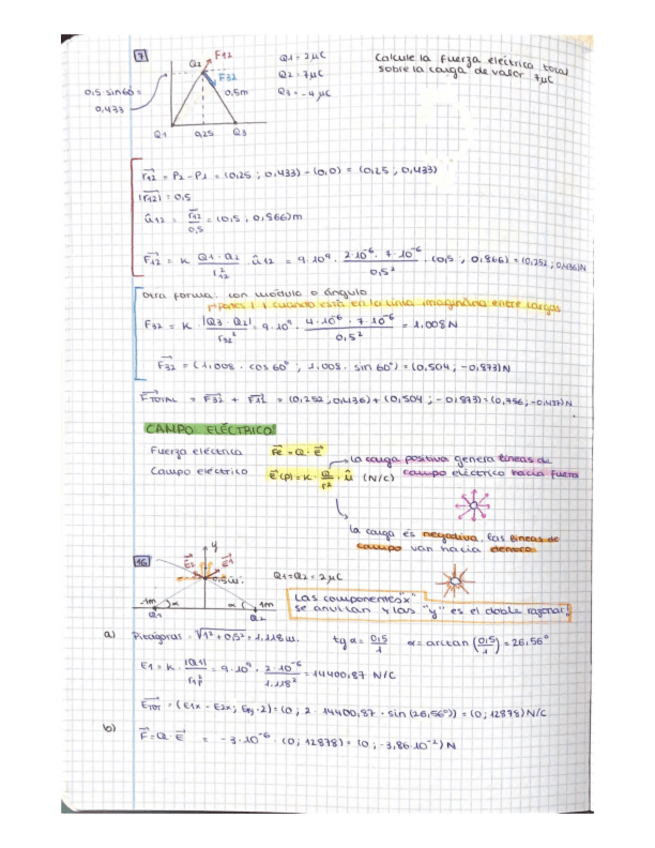 7
F12
Q2
F32
0,5 sin60 =
0,433
0,5m
Q1 0,25 Q3
Q1 = 2μC
Q2 = 7μC
Q3 = -4μC
Calcule la fuerza eléctrica total
sobre la carga de valor 7μC
r12 = P2 - P1 = (0,25 ; 0,433) - (0,0) = (0,25 ; 0,433)
|r12| = 0,5
û12 = r12/0,5 = (0,5 , 0,866)m
F12 = K Q1·Q2/r12² · û12 = 9·10⁹ · 2·10⁻⁶ · 7·10⁻⁶/0,5² · (0,5 , 0,866) = (0,252 ; 0,436)N
Otra forma: con módulo o ángulo
cuando está en la línea imaginaria entre cargas
F32 = K · |Q3·Q2|/r32² = 9·10⁹ · 4·10⁻⁶ · 7·10⁻⁶/0,5² = 1,008N
F32 = (1,008 · cos 60° ; 1,008 · sin 60°) = (0,504 ; -0,873)N
FTOTAL = F32 + F12 = (0,252 ; 0,436) + (0,504 ; -0,873) = (0,756 , -0,437)N
CAMPO ELÉCTRICO:
Fuerza eléctrica Fe = Q · E
Campo eléctrico E(p) = K · Q/r² · û (N/C)
La carga positiva genera líneas de
campo eléctrico hacia fuera
la carga es negativa, las líneas de
campo van hacia dentro
16
y
E2 E1
0,5m
1m α α 1m
Q1 Q2
Q1=Q2 = 2μC
Las componentes "x"
se anulan y las "y" es el doble razonar!
a) Pitágoras = √1² + 0,5² = 1,118m. tg α = 0,5/1 α = arctan (0,5/1) = 26,56°
E1 = K · |Q1|/r1p² = 9·10⁹ · 2·10⁻⁶/1,118² = 14400,87 N/C
ETOT = (E1x - E2x ; Ey·2) = (0 ; 2 · 14400,87 · sin (26,56°)) = (0 ; 12878) N/C
b) F = Q · E = -3·10⁻⁶ · (0 ; 12878) = (0 ; -3,86·10⁻²) N